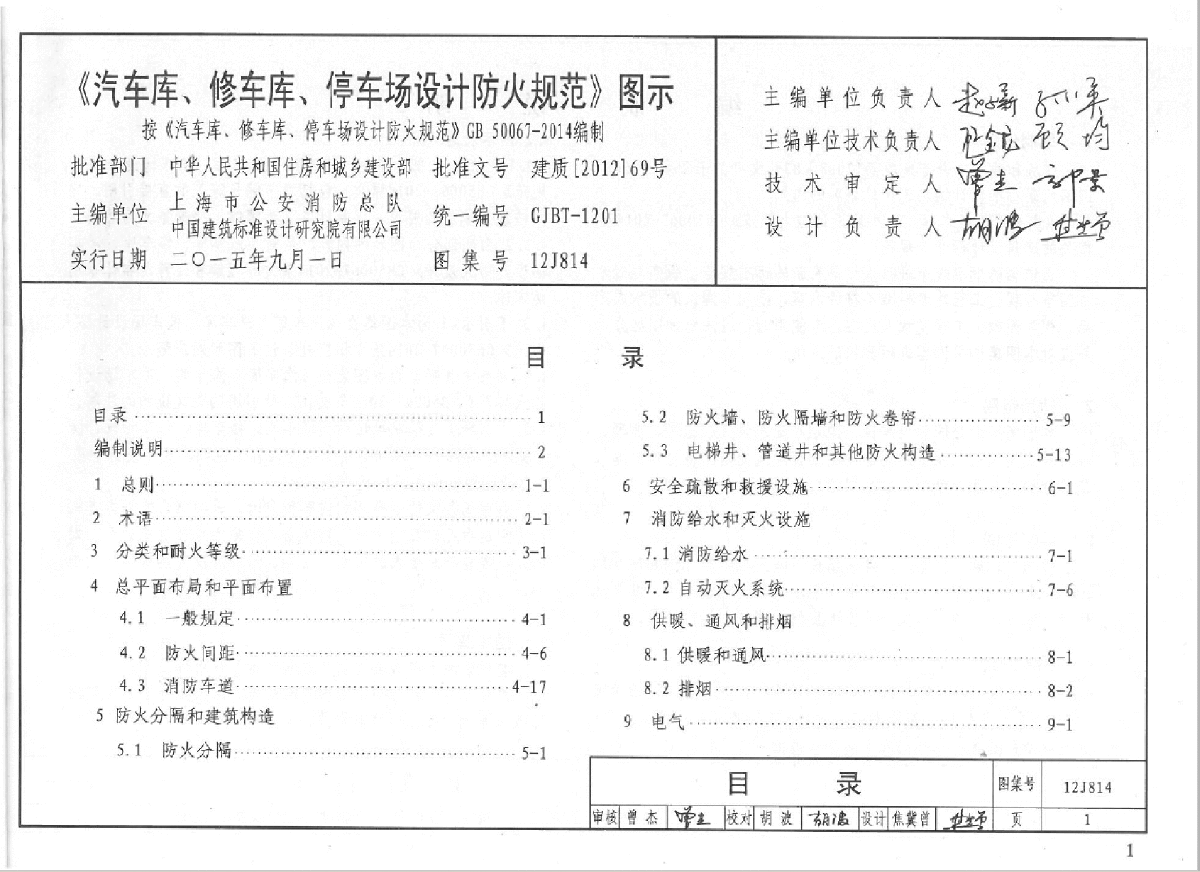 《汽车库、修车库、停车场设计防火规范》图示
按《汽车库、修车库、停车场设计防火规范》GB 50067-2014编制
批准部门 中华人民共和国住房和城乡建设部 批准文号 建质[2012]69号
主编单位 上海市公安消防总队 统一编号 GJBT-1201
中国建筑标准设计研究院有限公司
实行日期 二〇一五年九月一日 图集号 12J814
主编单位负责人
主编单位技术负责人
技术审定人
设计负责人 胡波
目 录
目录 1
编制说明 2
1 总则 1-1
2 术语 2-1
3 分类和耐火等级 3-1
4 总平面布局和平面布置
4.1 一般规定 4-1
4.2 防火间距 4-6
4.3 消防车道 4-17
5 防火分隔和建筑构造
5.1 防火分隔 5-1
5.2 防火墙、防火隔墙和防火卷帘 5-9
5.3 电梯井、管道井和其他防火构造 5-13
6 安全疏散和救援设施 6-1
7 消防给水和灭火设施
7.1 消防给水 7-1
7.2 自动灭火系统 7-6
8 供暖、通风和排烟
8.1 供暖和通风 8-1
8.2 排烟 8-2
9 电气 9-1
目 录 图集号 12J814
审核 曾杰 校对 胡波 胡波 设计 焦冀曾 页 1
1